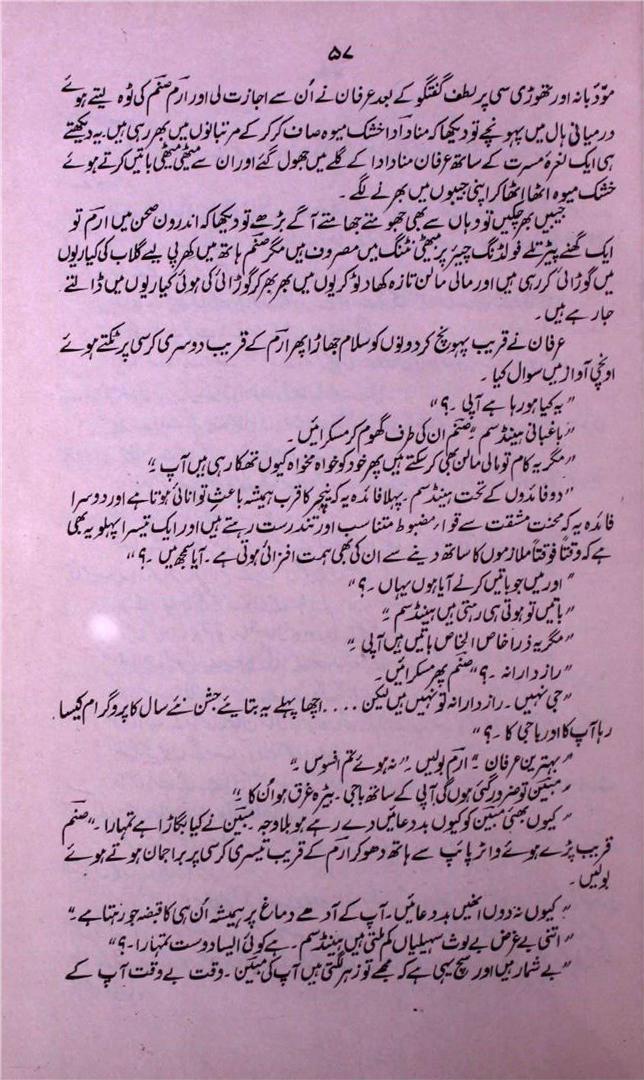 ۵۷
مؤدبانہ اور تھوڑی سی پر لطف گفتگو کے بعد عرفان نے اُن سے اجازت لی اور ارم صنم کی ٹوہ لیتے ہوئے
درمیانی ہال میں پہونچے تو دیکھا کہ منا دادا خشک میوہ صاف کر کر کے مرتبانوں میں بھر رہی ہیں۔ یہ دیکھتے
ہی ایک نعرۂ مسرت کے ساتھ عرفان منا دادا کے گلے میں جھول گئے اور ان سے میٹھی میٹھی باتیں کرتے ہوئے
خشک میوہ اٹھا اٹھا کر اپنی جیبوں میں بھرنے لگے۔
جیبیں بھر چکیں تو وہاں سے بھی جھومتے جھامتے آگے بڑھے تو دیکھا کہ اندرون صحن میں ارم تو
ایک گھنے پیڑ تلے فولڈنگ چیئر پر بیٹھی نٹنگ میں مصروف ہیں مگر صنم ہاتھ میں کھرپی لیے گلاب کی کیاریوں
میں گوڑائی کر رہی ہیں اور مالی مالن تازہ کھاد ٹوکریوں میں بھر بھر کر گوڑائی کی ہوئی کیاریوں میں ڈالتے
جا رہے ہیں۔
عرفان نے قریب پہونچ کر دونوں کو سلام جھاڑا پھر ارم کے قریب دوسری کرسی پر ٹکتے ہوئے
اونچی آواز میں سوال کیا۔
"یہ کیا ہو رہا ہے آپی ۔؟"
"باغبانی ہینڈسم" صنم ان کی طرف گھوم کر مسکرائیں۔
"مگر یہ کام تو مالی مالن بھی کر سکتے ہیں پھر خود کو خواہ مخواہ کیوں تھکا رہی ہیں آپ۔"
"دو فائدوں کے تحت ہینڈسم۔ پہلا فائدہ یہ کہ نیچر کا قرب ہمیشہ باعثِ توانائی ہوتا ہے اور دوسرا
فائدہ یہ کہ محنت مشقت سے قواء مضبوط متناسب اور تندرست رہتے ہیں اور ایک تیسرا پہلو یہ بھی
ہے کہ وقتاً فوقتاً ملازموں کا ساتھ دینے سے ان کی بھی ہمت افزائی ہوتی ہے۔ آیا سمجھ میں ۔؟"
"اور میں جو باتیں کرنے آیا ہوں یہاں ۔؟"
"باتیں تو ہوتی ہی رہتی ہیں ہینڈسم۔"
"مگر یہ ذرا خاص الخاص باتیں ہیں آپی۔"
"رازدارانہ ۔؟" صنم پھر مسکرائیں۔
"جی نہیں۔ رازدارانہ تو نہیں ہیں لیکن .... اچھا پہلے یہ بتایئے جشن نئے سال کا پروگرام کیسا
رہا آپ کا اور باجی کا ۔؟"
"بہترین عرفان" ارم بولیں۔ "نہ ہوئے تم افسوس۔"
"مبین تو ضرور گئی ہوں گی آپی کے ساتھ باجی۔ بیڑہ غرق ہو اُن کا۔"
"کیوں بھئی مبین کو کیوں بددعائیں دے رہے ہو بلاوجہ۔ مبین نے کیا بگاڑا ہے تمہارا۔" صنم
قریب پڑے ہوئے واٹر پائپ سے ہاتھ دھو کر ارم کے قریب تیسری کرسی پر براجمان ہوتے ہوئے
بولیں۔
"کیوں نہ دوں انہیں بددعائیں۔ آپ کے آدھے دماغ پر ہمیشہ اُن ہی کا قبضہ جو رہتا ہے۔"
"اتنی بے غرض بے لوث سہیلیاں کم ملتی ہیں ہینڈسم۔ ہے کوئی ایسا دوست تمہارا ۔؟"
"بے شمار ہیں اور سچ یہی ہے کہ مجھے تو زہر لگتی ہیں آپ کی مبین۔ وقت بے وقت آپ کے